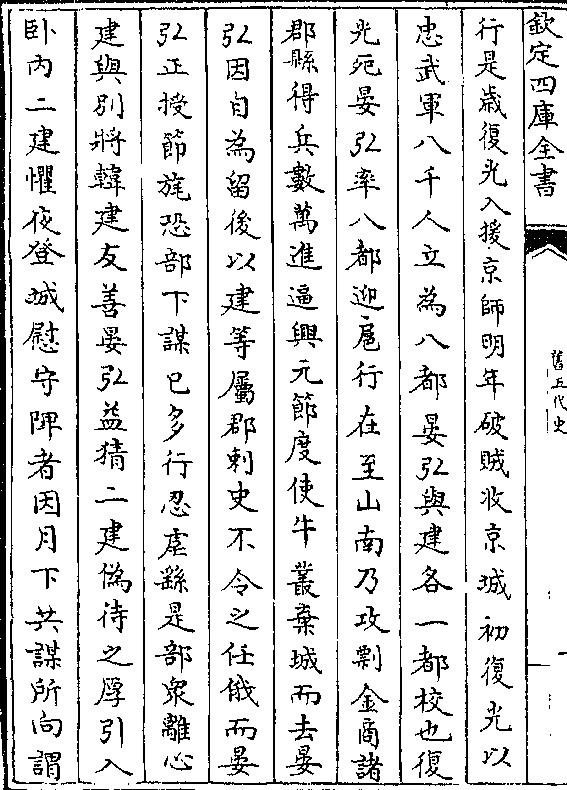 欽定四庫全書
舊五代史
行是歳復光入援京師明年破賊收京城初復光以
忠武軍八千人立為八都晏弘與建各一都校也復
光死晏弘率八都迎扈行在至山南乃攻剽金商諸
郡縣得兵數萬進逼興元節度使牛叢棄城而去晏
弘因自為留後以建等屬郡刺史不令之任俄而晏
弘正授節旄恐部下謀已多行忍虐繇是部衆離心
建與别將韓建友善晏弘益猜二建偽待之厚引入
卧内二建懼夜登城慰守陴者因月下共謀所向謂